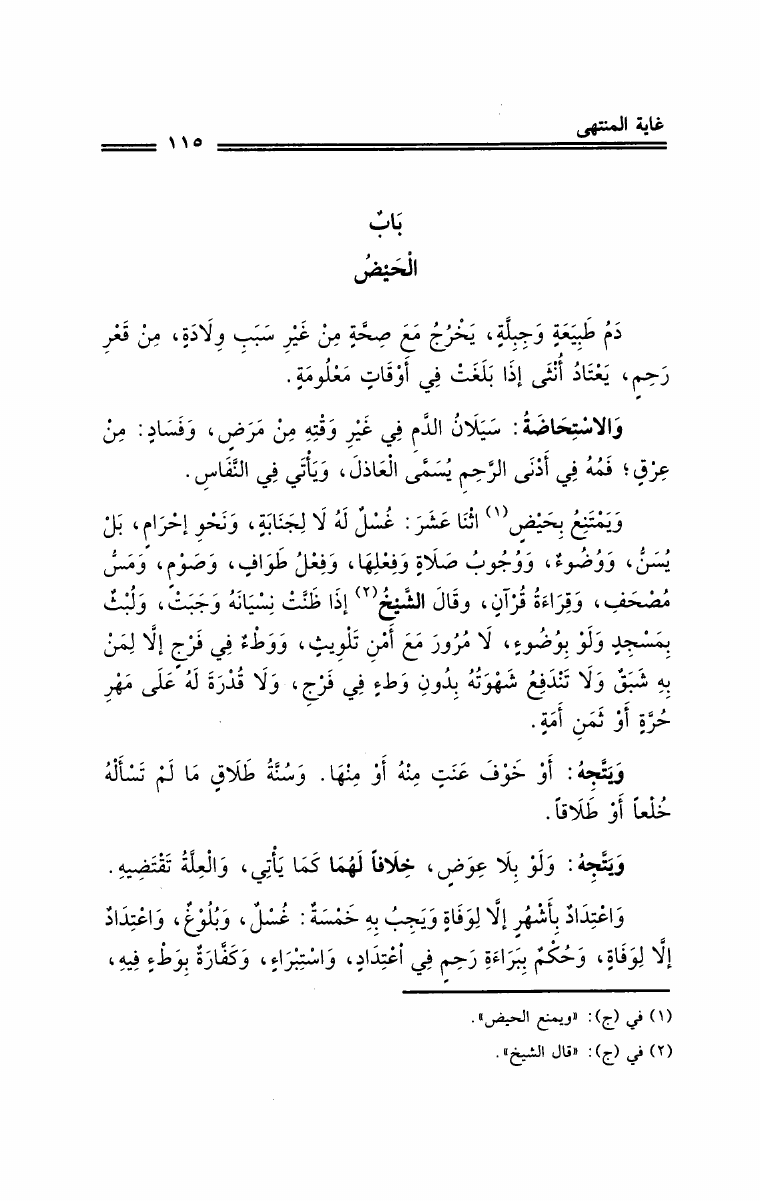 غاية المنتهى
١١٥
بَابٌ
الْحَيْضُ
دَمُ طَبِيعَةٍ وَجِبِلَّةٍ، يَخْرُجُ مَعَ صِحَّةٍ مِنْ غَيْرِ سَبَبِ وِلَادَةٍ، مِنْ قَعْرِ
رَحِمٍ، يَعْتَادُ أُنْثَى إذَا بَلَغَتْ فِي أَوْقَاتٍ مَعْلُومَةٍ.
وَالاسْتِحَاضَةُ: سَيَلَانُ الدَّمِ فِي غَيْرِ وَقْتِهِ مِنْ مَرَضٍ، وَفَسَادٍ: مِنْ
عِرْقٍ؛ فَمُهُ فِي أَدْنَى الرَّحِمِ يُسَمَّى الْعَاذلَ، وَيَأْتَي فِي النَّفَاسِ.
وَيَمْتَنِعُ بِحَيْضٍ(١) اثْنَا عَشَرَ: غُسْلٌ لَهُ لَا لِجَنَابَةٍ، وَنَحْوِ إحْرَامٍ، بَلْ
يُسَنُّ، وَوُضُوءٌ، وَوُجُوبُ صَلَاةٍ وَفِعْلِهَا، وَفِعْلُ طَوَافٍ، وَصَوْمٍ، وَمَسُّ
مُصْحَفٍ، وَقِرَاءَةُ قُرْآنٍ، وقَالَ الشَّيْخُ(٢) إذَا ظَنَّتْ نِسْيَانَهُ وَجَبَتْ، وَلُبْثٌ
بِمَسْجِدٍ وَلَوْ بِوُضُوءٍ، لَا مُرُورَ مَعَ أَمْنِ تَلْوِيثٍ، وَوَطْءٌ فِي فَرْجٍ إلَّا لِمَنْ
بِهِ شَبَقٌ وَلَا تَنْدَفِعُ شَهْوَتُهُ بِدُونِ وَطءٍ فِي فَرْجٍ، وَلَا قُدْرَةَ لَهُ عَلَى مَهْرِ
حُرَّةٍ أَوْ ثَمَنِ أَمَةٍ.
وَيَتَّجِهُ: أَوْ خَوْفَ عَنَتٍ مِنْهُ أَوْ مِنْهَا. وَسُنَّةُ طَلَاقٍ مَا لَمْ تَسْأَلْهُ
خُلْعاً أَوْ طَلَاقاً.
وَيَتَّجِهُ: وَلَوْ بِلَا عِوَضٍ، خِلَافاً لَهُمَا كَمَا يَأْتِي، وَالْعِلَّةُ تَقْتَضِيهِ.
وَاعْتِدَادٌ بِأَشْهُرٍ إلَّا لِوَفَاةٍ وَيَجِبُ بِهِ خَمْسَةٌ: غُسْلٌ، وَبُلُوْغٌ، وَاعْتِدَادٌ
إلَّا لِوَفَاةٍ، وَحُكْمٌ بِبَرَاءَةِ رَحِمٍ فِي اْعْتِدَادٍ، وَاسْتِبْرَاءٍ، وَكَفَّارَةٌ بِوَطْءٍ فِيهِ،
(١) في (ج): «ويمنع الحيض».
(٢) في (ج): «قال الشيخ».